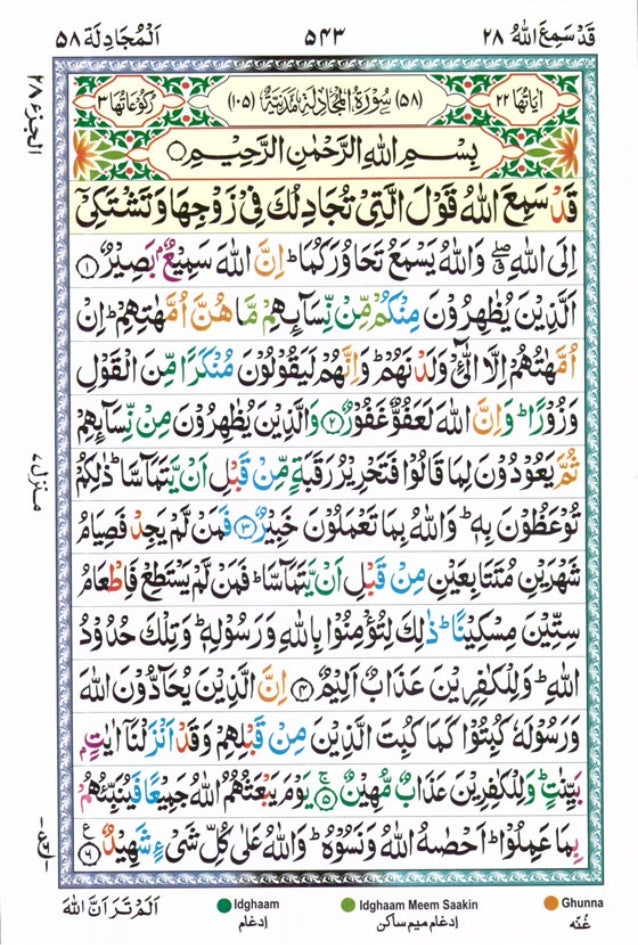 قَدْ سَمِعَ اللّٰهُ ٢٨
٥٤٣
اَلْمُجَادِلَة ٥٨
الجزء ٢٨
اٰيَاتُهَا ٢٢
(٥٨) سُوْرَةُ الْمُجَادِلَةِ مَدَنِيَّةٌ (١٠٥)
رُكُوْعَاتُهَا ٣
بِسْمِ اللّٰهِ الرَّحْمٰنِ الرَّحِيْمِ
قَدْ سَمِعَ اللّٰهُ قَوْلَ الَّتِيْ تُجَادِلُكَ فِيْ زَوْجِهَا وَتَشْتَكِيْۤ
اِلَى اللّٰهِ ۖ وَاللّٰهُ يَسْمَعُ تَحَاوُرَكُمَا ؕ اِنَّ اللّٰهَ سَمِيْعٌۢ بَصِيْرٌ ﴿١﴾
اَلَّذِيْنَ يُظٰهِرُوْنَ مِنْكُمْ مِّنْ نِّسَآىِٕهِمْ مَّا هُنَّ اُمَّهٰتِهِمْ ؕ اِنْ
اُمَّهٰتُهُمْ اِلَّا الّٰٓـِٔيْ وَلَدْنَهُمْ ؕ وَاِنَّهُمْ لَيَقُوْلُوْنَ مُنْكَرًا مِّنَ الْقَوْلِ
وَزُوْرًا ؕ وَاِنَّ اللّٰهَ لَعَفُوٌّ غَفُوْرٌ ﴿٢﴾ وَالَّذِيْنَ يُظٰهِرُوْنَ مِنْ نِّسَآىِٕهِمْ
ثُمَّ يَعُوْدُوْنَ لِمَا قَالُوْا فَتَحْرِيْرُ رَقَبَةٍ مِّنْ قَبْلِ اَنْ يَّتَمَآسَّا ؕ ذٰلِكُمْ
تُوْعَظُوْنَ بِهٖ ؕ وَاللّٰهُ بِمَا تَعْمَلُوْنَ خَبِيْرٌ ﴿٣﴾ فَمَنْ لَّمْ يَجِدْ فَصِيَامُ
شَهْرَيْنِ مُتَتَابِعَيْنِ مِنْ قَبْلِ اَنْ يَّتَمَآسَّا ؕ فَمَنْ لَّمْ يَسْتَطِعْ فَاِطْعَامُ
سِتِّيْنَ مِسْكِيْنًا ؕ ذٰلِكَ لِتُؤْمِنُوْا بِاللّٰهِ وَرَسُوْلِهٖ ؕ وَتِلْكَ حُدُوْدُ
اللّٰهِ ؕ وَلِلْكٰفِرِيْنَ عَذَابٌ اَلِيْمٌ ﴿٤﴾ اِنَّ الَّذِيْنَ يُحَآدُّوْنَ اللّٰهَ
وَرَسُوْلَهٗ كُبِتُوْا كَمَا كُبِتَ الَّذِيْنَ مِنْ قَبْلِهِمْ وَقَدْ اَنْزَلْنَاۤ اٰيٰتٍۭ
بَيِّنٰتٍ ؕ وَلِلْكٰفِرِيْنَ عَذَابٌ مُّهِيْنٌ ﴿٥﴾ۚ يَوْمَ يَبْعَثُهُمُ اللّٰهُ جَمِيْعًا فَيُنَبِّئُهُمْ
بِمَا عَمِلُوْا ؕ اَحْصٰىهُ اللّٰهُ وَنَسُوْهُ ؕ وَاللّٰهُ عَلٰى كُلِّ شَيْءٍ شَهِيْدٌ ﴿٦﴾ ع
منزل ٧
اَلَمْ تَرَ اَنَّ اللّٰهَ
Idghaam
اِدغام
Idghaam Meem Saakin
اِدغام ميم ساكن
Ghunna
غُنّه